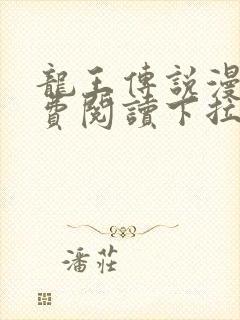 龍王傳説漫
費閱讀下拉
潘莊